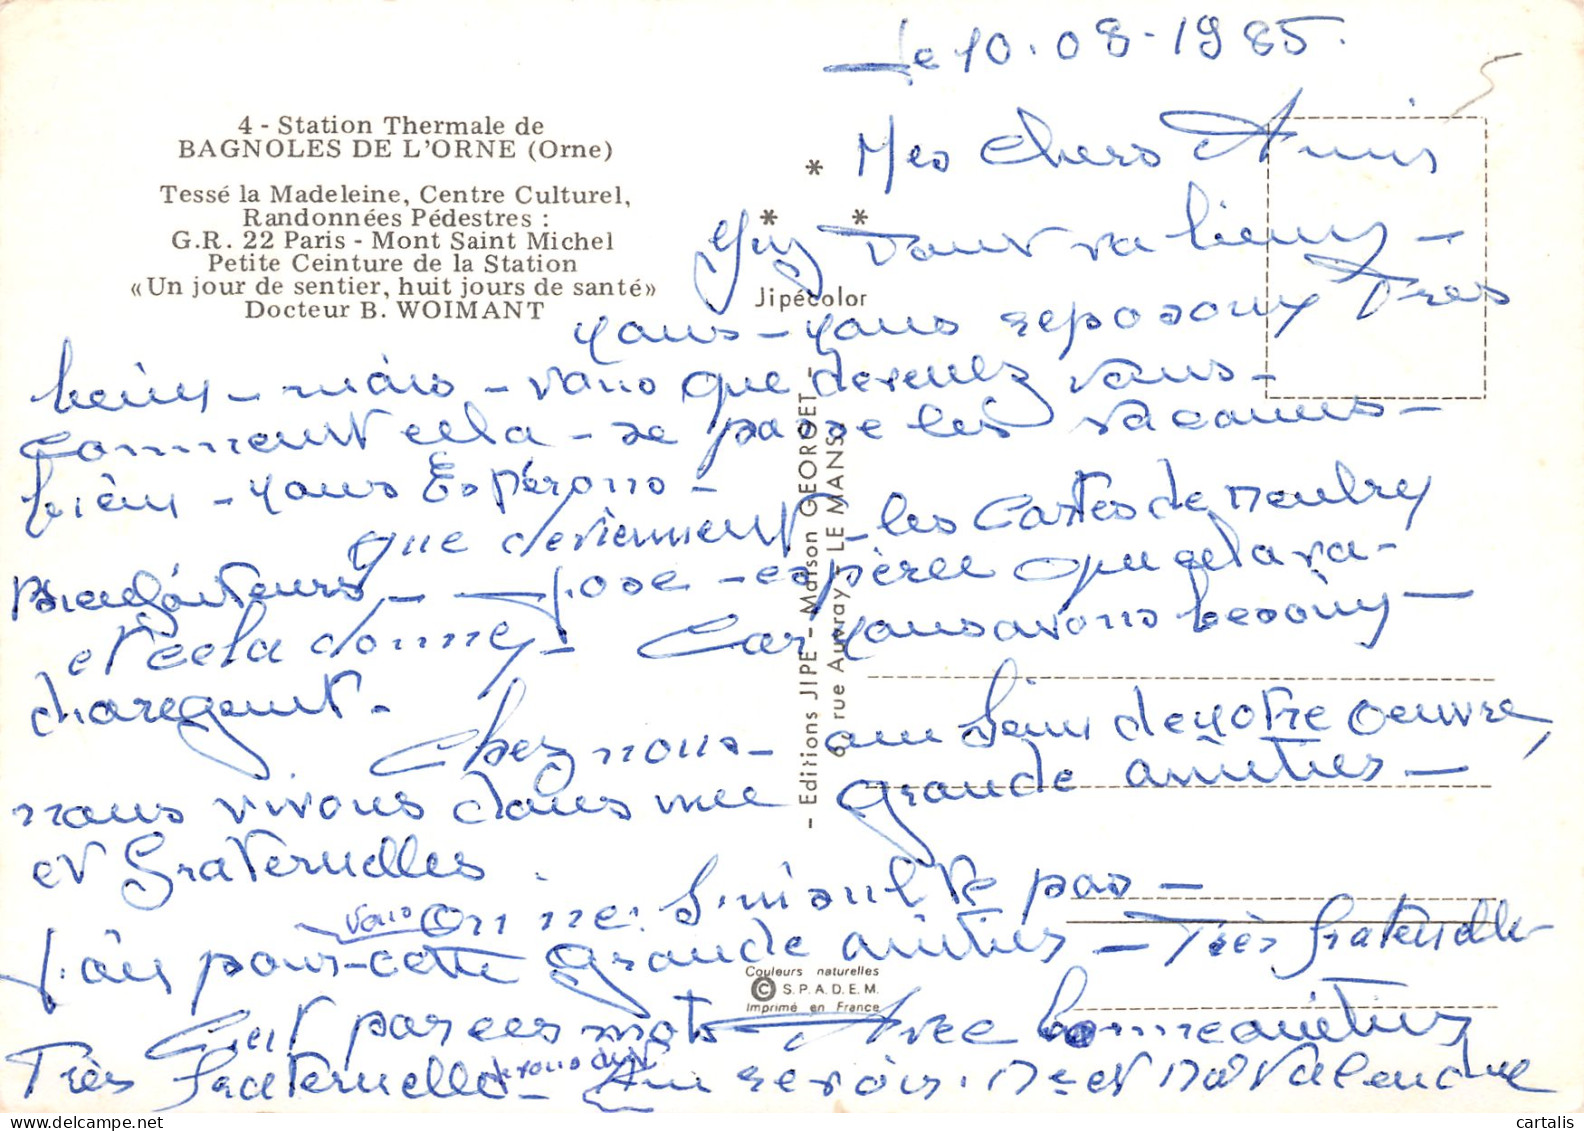 Le 10.08-1985.
4 - Station Thermale de
BAGNOLES DE L'ORNE (Orne)
Tessé la Madeleine, Centre Culturel,
Randonnées Pédestres :
G.R. 22 Paris - Mont Saint Michel
Petite Ceinture de la Station
«Un jour de sentier, huit jours de santé»
Docteur B. WOIMANT
* * *
Jipécolor
- Editions JIPE - Maison GEORGET -
6, rue Auvray - LE MANS
Mes chers Amis
Ici tout va bien -
nous - nous reposons Très
bien - mais - vous que devenez vous -
comment cela - se passe les vacances -
bien - nous Espérons -
que deviennent - les Cartes de membres
Bienfaiteurs - José - espère que cela va -
et cela donne - Car nous avons besoin -
d'argent -
Chez nous - au sein de notre oeuvre,
nous vivons dans une grande amitiés -
et fraternelles .
On ne s'insulte pas -
vous
J'ai pour cette grande amitiés - Très fraternelle
C'est par ces mots - Avec bonne amitiés
Très fraternelle - Au revoir. Mr et Mme Valentine
Couleurs naturelles
© S.P.A.D.E.M.
Imprimé en France
cartalis